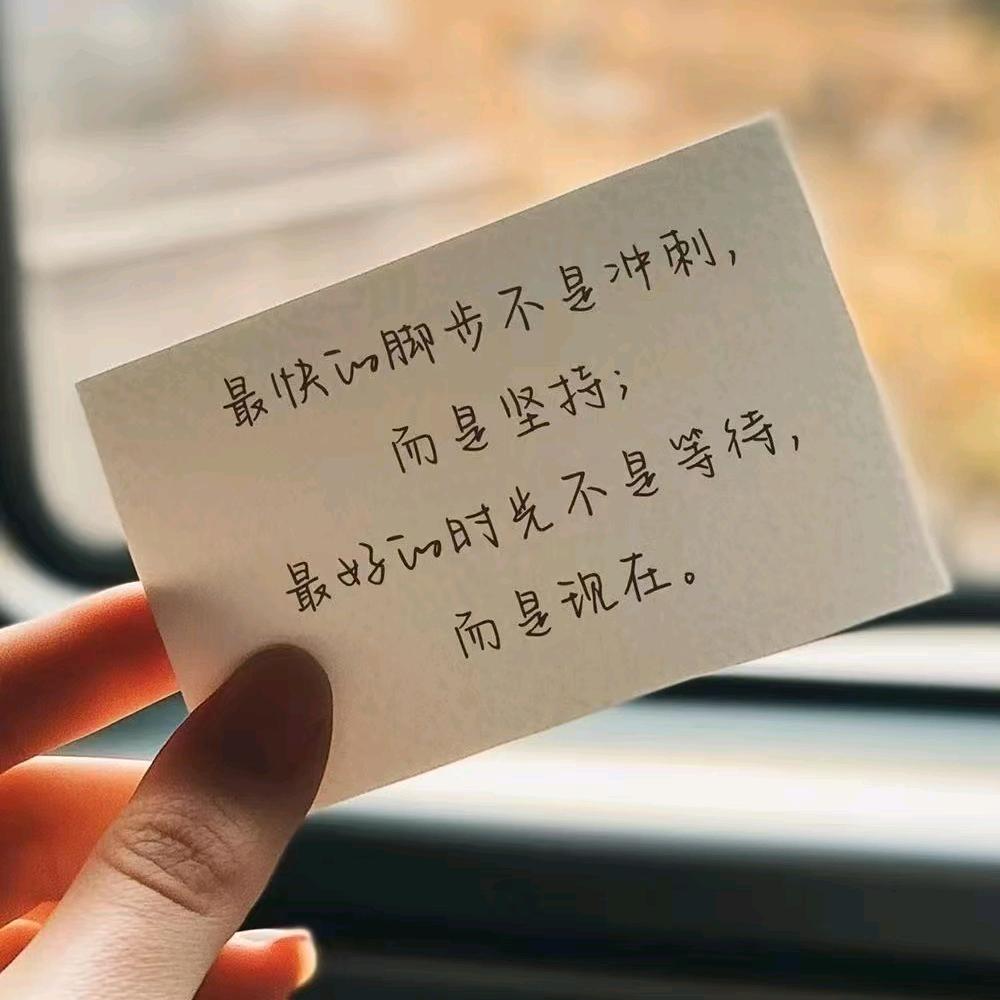 最快的脚步不是冲刺，
而是坚持；
最好的时光不是等待，
而是现在。